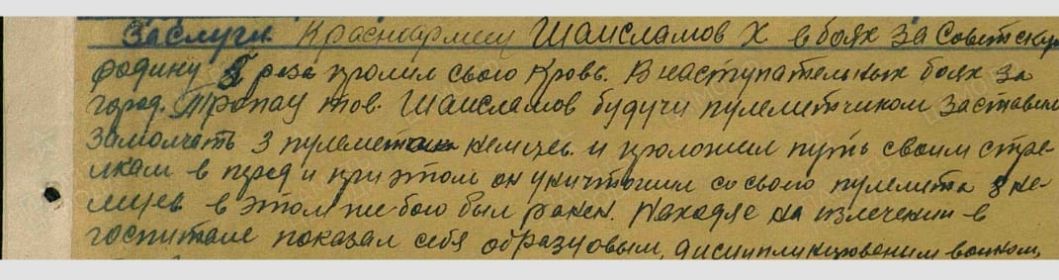 заслуги Красноармеец Шаисламов Х в боях за Советскую
родину 8 раза пролил свою кровь. В наступательных боях за
город. Тропау тов. Шаисламов будучи пулеметчиком заставил
замолчать 3 пулемета немцев. и проложил путь своим стре
лкам в перед и при этом он уничтожил со своего пулемета 8 не
мцев в этом же бою был ранен. Находяс на излечении в
госпитале показал себя образцовым, дисциплинированим воином,